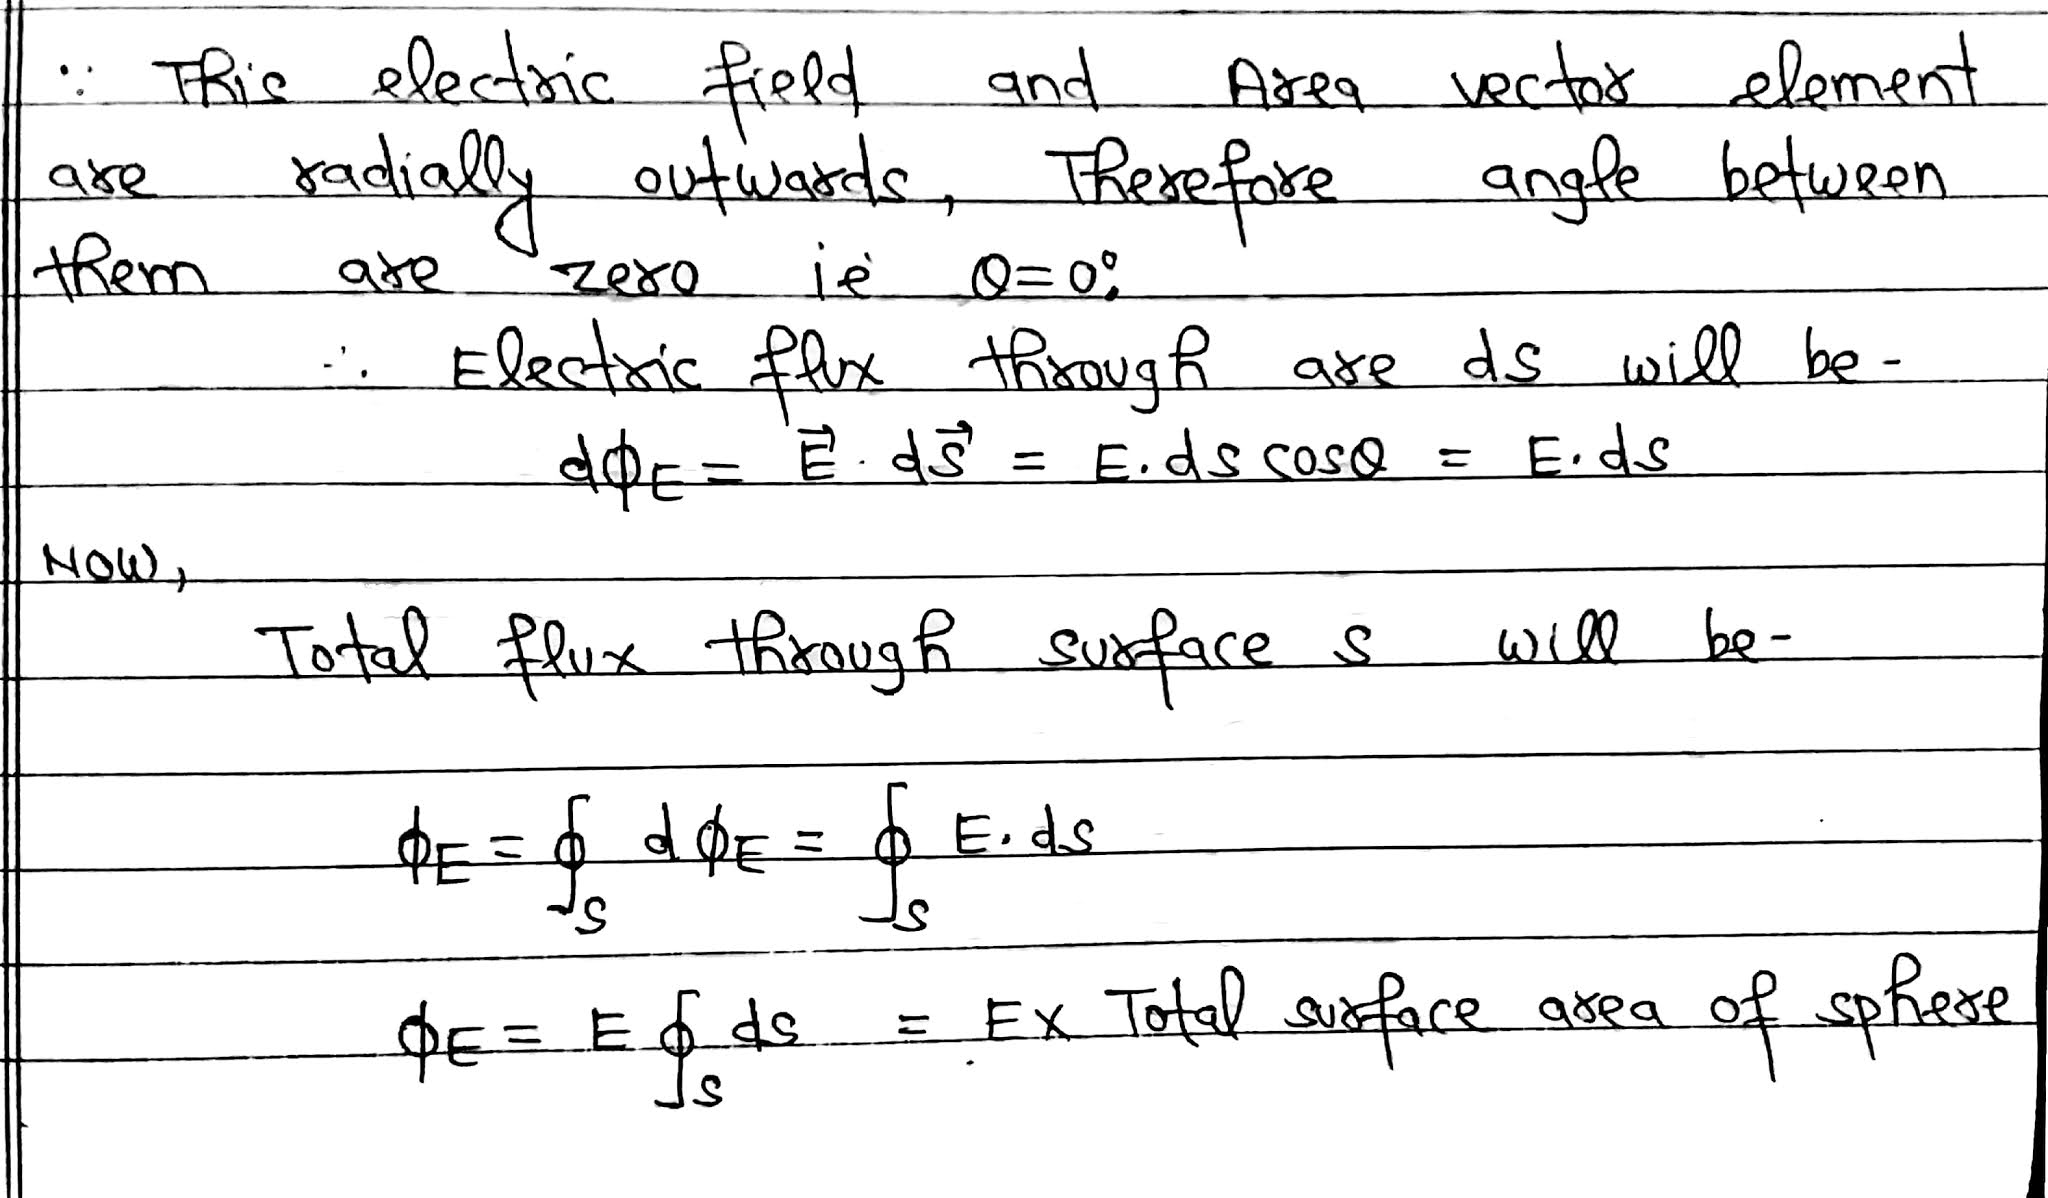 ∵ This electric field and Area vector element
are radially outwards, Therefore angle between
them are zero ie θ=0°
∴ Electric flux through are ds will be-
dϕE = E⃗ . dS⃗ = E.ds cosθ = E.ds
NOW,
Total flux through surface s will be-
ϕE = ∮S dϕE = ∮S E.ds
ϕE = E ∮S ds = Ex Total surface area of sphere